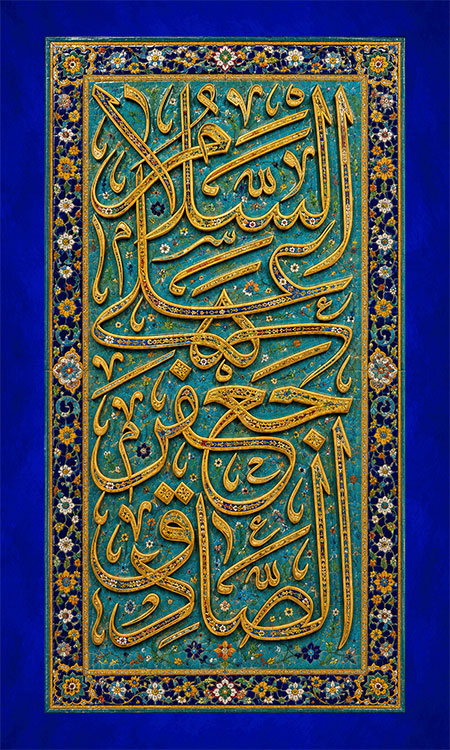 السلام
على
جعفر
الصادق